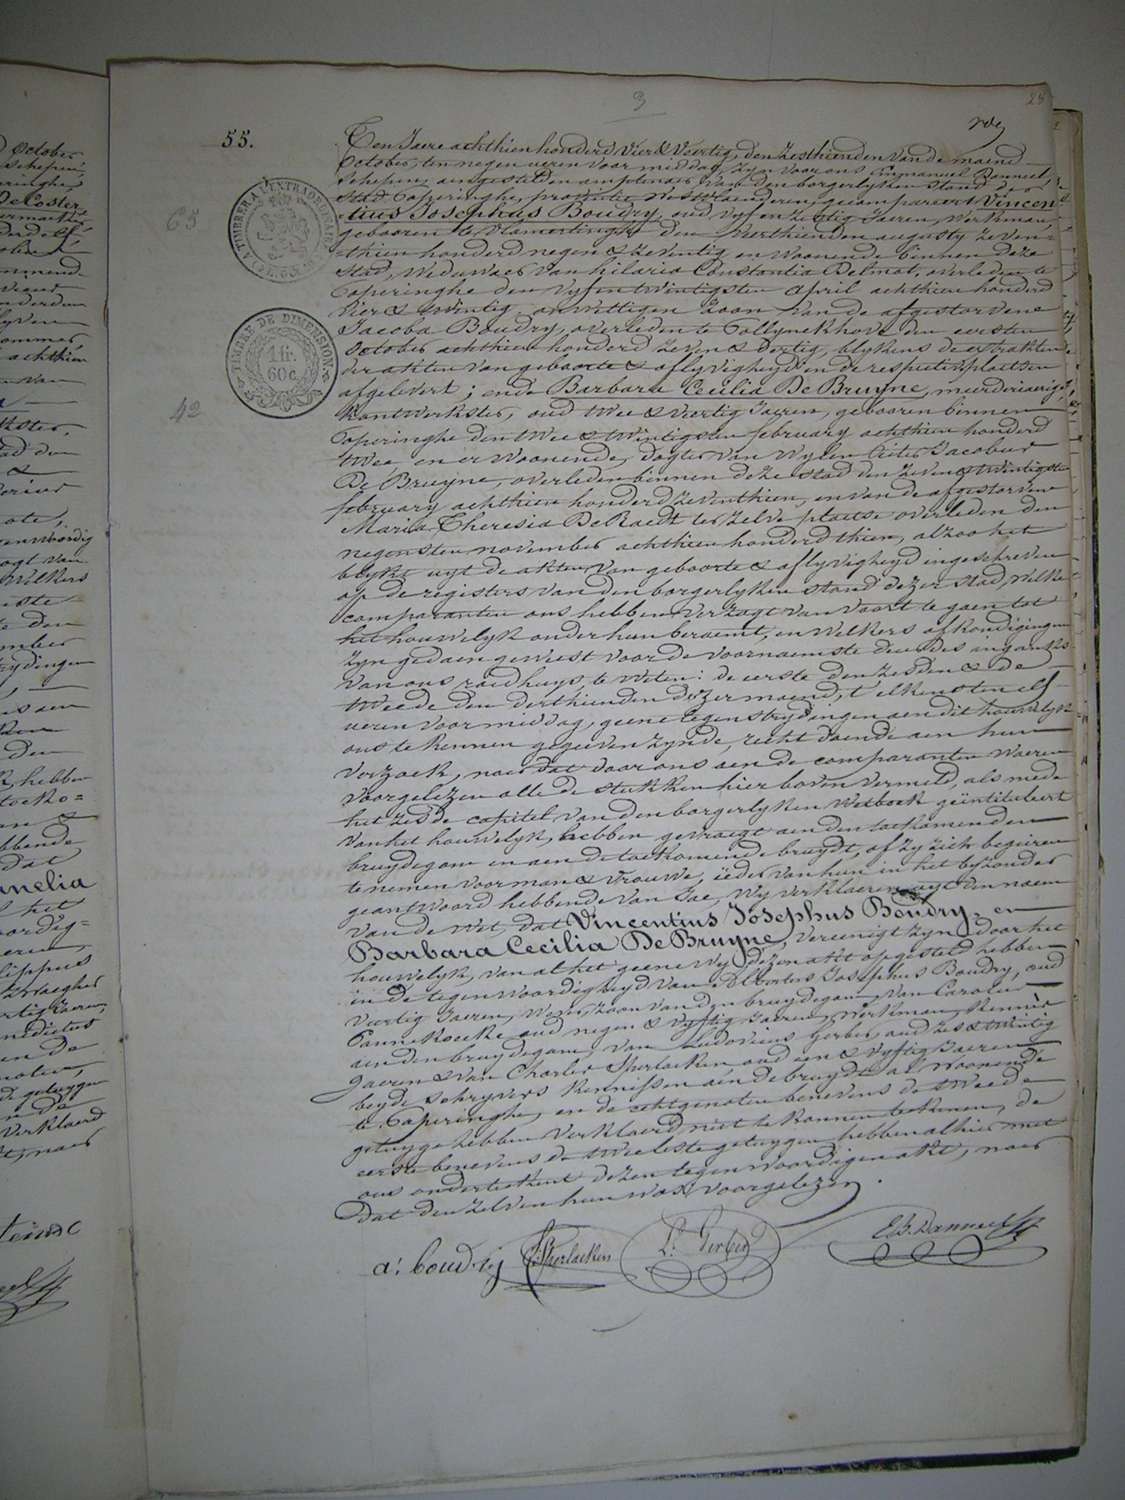 3
28
55.
65
42
TIMBRE A L'EXTRAORDINAIRE
TIMBRE DE DIMENSION
1 fr.
60 c.
Ten Jaere achthien honderd Vier & Veertig, den Zesthienden van de maend
October, ten negen ueren voor middag, Zyn voor ons Emmanuel Ranneel,
Schepen, aengestelden amptenaer van den borgerlyken stand der
Stad Poperinghe, provintie West Vlaenderen, gecompareert Vincen
=tius Josephus Boudry, oud vyf en Zestig Jaeren, Werkman,
gebooren te Vlamertinghe den Veerthienden augusty Zeven=
=thien honderd negen & Zeventig en Woonende binnen deze
Stad, Weduwaer van hilaria Constantia Delmot, overleden te
Poperinghe den Vyf en twintigsten april achthien honderd
Vier & twintig, onwettigen Zoon van de afgestorvene
Jacoba Boudry, overleden te Pollynckhove den eersten
October achthien honderd Zeven & dertig, blykens de extrakten
der akten van geboorte & aflyvigheyd in de respective plaetsen
afgelevert; ende Barbara Cecilia De Bruyne, meerderjarige
Kantwerkster, oud twee & Veertig Jaeren, gebooren binnen
Poperinghe den twee & twintigsten february achthien honderd
twee en er Woonende, dogter van Wylen Pieter Jacobus
De Bruyne, overleden binnen deze stad den Zeven & twintigste
february achthien honderd Zeventhien, en van de afgestorven
Maria Theresia De Raedt ter Zelve plaetse overleden den
negensten november achthien honderd thien, alzoo het
blykt uyt de akten van geboorte & aflyvigheyd ingeschreven
op de registers van den borgerlyken stand dezer stad, Welke
comparanten ons hebben verzogt van voort te gaen tot
het houwelyk onder hun beraemt, en Welkers afkondigingen
Zyn gedaen geweest voor de voornaemste deur des ingangs
van ons raedhuys te Weten: de eerste den Zesden & de
tweede den derthienden dezer maend, t' elkens ten elf
ueren voor middag, geene tegenstrydingen aen dit houwelyk
ons te kennen gegeeven zynde, recht doende aen hun
verzoek, naer dat door ons aen de comparanten Waeren
voorgelezen alle de stukken hier boven vermeld, als mede
het Zesde capittel van den borgerlyken Wetboek geïntituleert
van het houwelyk, hebben gevraegt aen den toekomenden
bruydegom en aen de toekomende bruydt, of zy zich begeiren
te nemen voor man & Vrouwe, ieder van hun in het byzonder
geantwoord hebbende van Jae, Wy verklaeren uyt den naem
van de Wet, dat Vincentius Josephus Boudry, en
Barbara Cecilia De Bruyne, Vereenigt Zyn door het
houwelyk, van al het geene Wy dezen akt opgesteld hebben
in de tegenwoordigheyd van Josephus Boudry, oud
Veertig Jaeren, Wever, Zoon van den bruydegom, van Carolus
Pannekoecke oud negen & Vyftig Jaeren, Werkman, Kennis
aen den bruydegom, van Ludovicus Gerber, oud Zes & twintig
Jaeren & van Charles Sperlaeken oud een & Vyftig Jaeren
beyde Schryvers Kennissen aen de bruydt, al Woonende
te Poperinghe, en de echtgenoten benevens de tweede
getuyge hebben Verklaerd niet te konnen teekenen, de
eerste benevens de twee leste getuygen hebben alhier met
ons onderteekent dezen tegenwoordigen akt, naer
dat den Zelven hun was voorgelezen.
a: boudrij
C: Sperlaeken
L: Gerber
E. B. Ranneel